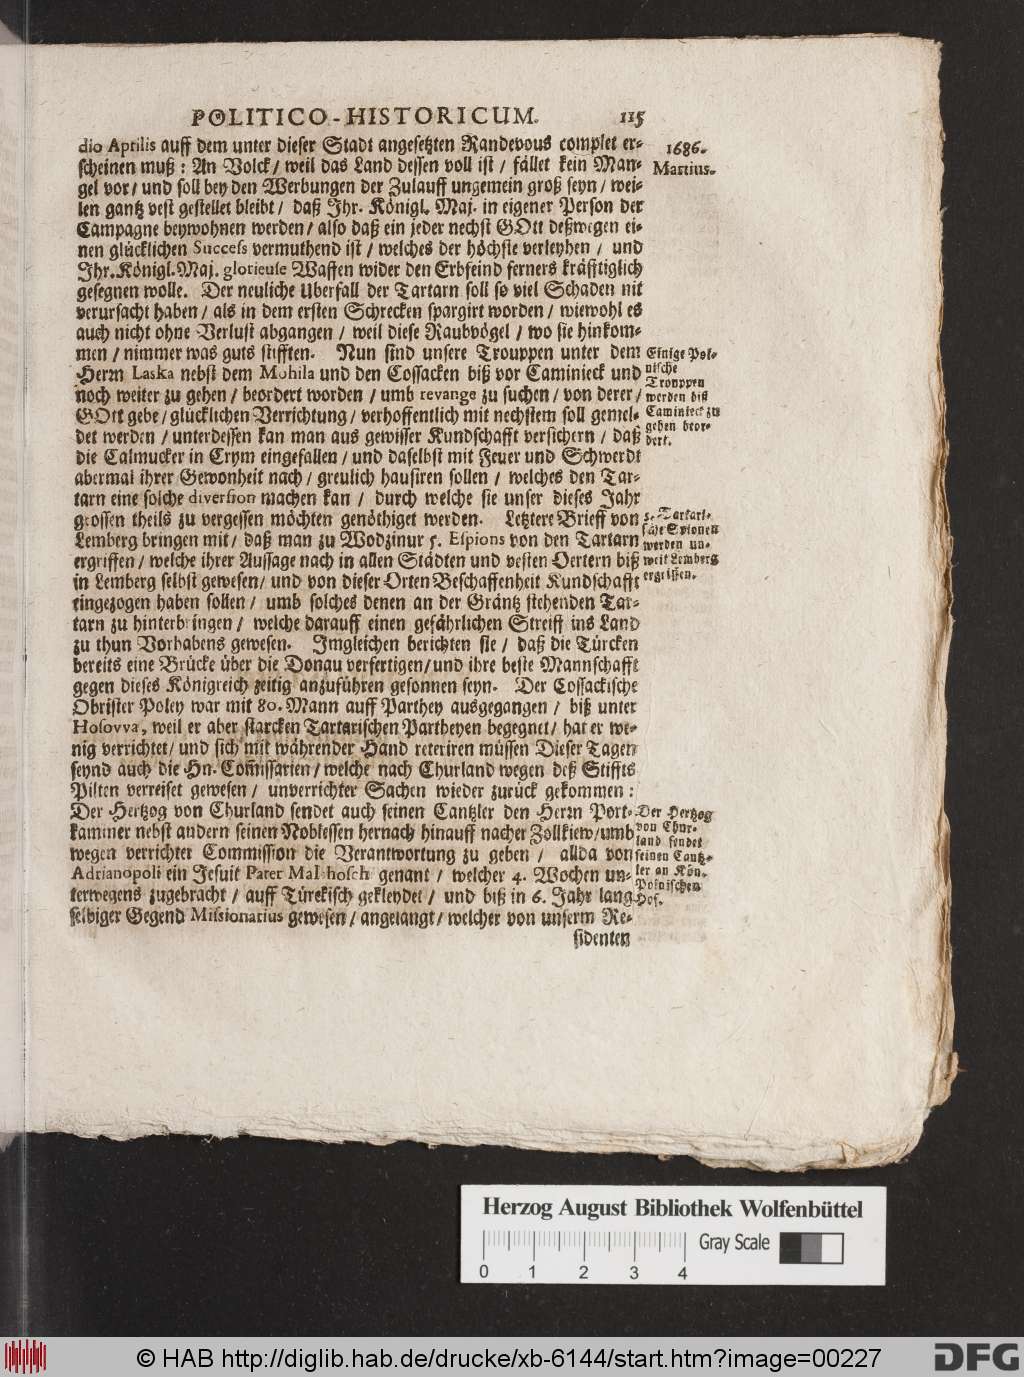 POLITICO-HISTORICUM. 115
dio Aprilis auff dem unter dieser Stadt angesetzten Randevous complet er-
scheinen muß: An Volck/ weil das Land dessen voll ist/ fället kein Man-
gel vor/ und soll bey den Werbungen der Zulauff ungemein groß seyn/ wei-
len gantz vest gestellet bleibt/ daß Ihr. Königl. Maj. in eigener Person der
Campagne beywohnen werden/ also daß ein jeder nechst GOtt deßwegen ei-
nen glücklichen Success vermuthend ist/ welches der höchste verleyhen/ und
Ihr. Königl. Maj. glorieuse Waffen wider den Erbfeind ferners kräfftiglich
gesegnen wolle. Der neuliche Uberfall der Tartarn soll so viel Schaden nit
verursacht haben/ als in dem ersten Schrecken spargirt worden/ wiewohl es
auch nicht ohne Verlust abgangen/ weil diese Raubvögel/ wo sie hinkom-
men/ nimmer was guts stifften. Nun sind unsere Trouppen unter dem
Herrn Laska nebst dem Mohila und den Cossacken biß vor Caminieck und
noch weiter zu gehen/ beordert worden/ umb revange zu suchen/ von derer/
GOtt gebe/ glücklichen Verrichtung/ verhoffentlich mit nechstem soll gemel-
det werden/ unterdessen kan man aus gewisser Kundschafft versichern/ daß
die Calmucker in Crym eingefallen/ und daselbst mit Feuer und Schwerdt
abermal ihrer Gewonheit nach/ greulich hausiren sollen/ welches den Tar-
tarn eine solche diversion machen kan/ durch welche sie unser dieses Jahr
grossen theils zu vergessen möchten genöthiget werden. Letztere Brieff von
Lemberg bringen mit/ daß man zu Wodzinur 5. Espions von den Tartarn
ergriffen/ welche ihrer Aussage nach in allen Städten und vesten Oertern biß
in Lemberg selbst gewesen/ und von dieser Orten Beschaffenheit Kundschafft
eingezogen haben sollen/ umb solches denen an der Gräntz stehenden Tar-
tarn zu hinterbringen/ welche darauff einen gefährlichen Streiff ins Land
zu thun Vorhabens gewesen. Imgleichen berichten sie/ daß die Türcken
bereits eine Brücke über die Donau verfertigen/ und ihre beste Mannschafft
gegen dieses Königreich zeitig anzuführen gesonnen seyn. Der Cossackische
Obrister Poley war mit 80. Mann auff Parthey ausgegangen/ biß unter
Hosovva, weil er aber starcken Tartarischen Partheyen begegnet/ hat er we-
nig verrichtet/ und sich mit währender Hand reteriren müssen Dieser Tagen
seynd auch die Hn. Com̄issarien/ welche nach Churland wegen deß Stiffts
Pilten verreiset gewesen/ unverrichter Sachen wieder zurück gekommen:
Der Hertzog von Churland sendet auch seinen Cantzler den Herrn Port-
kaminer nebst andern seinen Noblessen hernach hinauff nacher Zollkiew/ umb
wegen verrichter Commission die Verantwortung zu geben/ allda von
Adrianopoli ein Jesuit Pater genant/ welcher 4. Wochen un-
terwegens zugebracht/ auff Türckisch gekleydet/ und biß in 6. Jahr lang
selbiger Gegend Missionarius gewesen/ angelangt/ welcher von unserm Re-
sidenten
1686.
Martius.
Einige Pol-
nische
Trouppen
werden biß
Caminieck zu
gehen beor-
dert.
5. Tartari-
sche Spionen
werden un-
weit Lemberg
ergriffen.
Der Hertzog
von Chur-
land sendet
seinen Cantz-
ler an Kön.
Polnischen
Hof.
Herzog August Bibliothek Wolfenbüttel
Gray Scale
0 1 2 3 4
© HAB http://diglib.hab.de/drucke/xb-6144/start.htm?image=00227
DFG